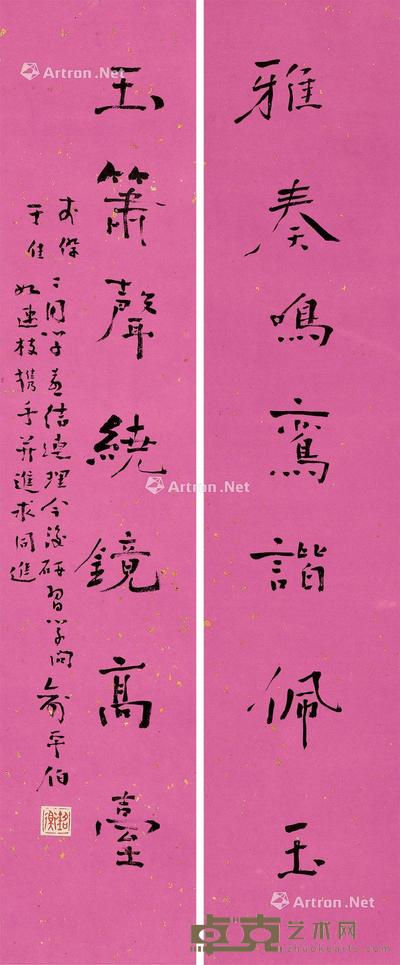 雅奏鳴鸞諧佩玉
玉簫聲繞鏡高臺
二同學喜結連理今後研習學問
如連枝携手并進求同進
俞平伯
Artron.Net
Artron.Net
Artron.Net
Artron.Net
卓克艺术网